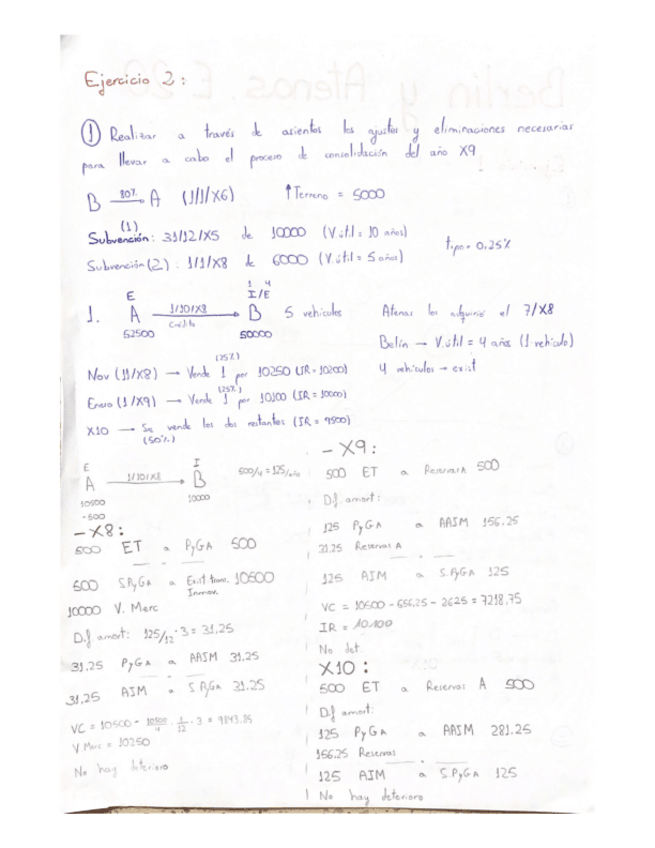 Ejercicio 2:
① Realizar a través de asientos los ajustes y eliminaciones necesarias
para llevar a cabo el proceso de consolidación del año X9
B 80% A (1/1/X6) ↑Terreno = 5000
(1)
Subvención: 31/12/X5 de 10000 (V.útil = 10 años)
tipo = 0.25%
Subvención(2): 1/1/X8 de 6000 (V.útil = 5 años)
1 4
E I/E
1. A 1/10/X8 B 5 vehículos Atenas los adquirió el 7/X8
Crédito
52500 50000 Belín → V.útil = 4 años (1 vehículo)
(25%)
Nov (11/X8) → Vende 1 por 10250 (IR = 10200) 4 vehículos → exist
(25%)
Enero (1/X9) → Vende 1 por 10100 (IR = 10000)
X10 → Se vende los dos restantes (IR = 9500)
(50%)
E I
A 1/10/X8 B 500/4 = 125/año
10500 10000
-500
- X8:
500 ET a PyGA 500
500 S.PyGA a Exist.trans. 10500
Inmov.
10000 V. Merc
Dif amort: 125/12 · 3 = 31,25
31.25 PyGA a AAIM 31.25
31.25 AIM a S.PyGA 31.25
VC = 10500 - 10500/4 · 1/12 · 3 = 9843.75
V.Merc = 10250
No hay deterioro
- X9:
500 ET a Reservas A 500
Dif amort:
125 PyGA a AAIM 156.25
31.25 Reservas A
125 AIM a S.PyGA 125
VC = 10500 - 656,25 - 2625 = 7218,75
IR = 10100
No det.
X10:
500 ET a Reservas A 500
Dif amort:
125 PyGA a AAIM 281.25
156.25 Reservas
125 AIM a S.PyGA 125
No hay deterioro